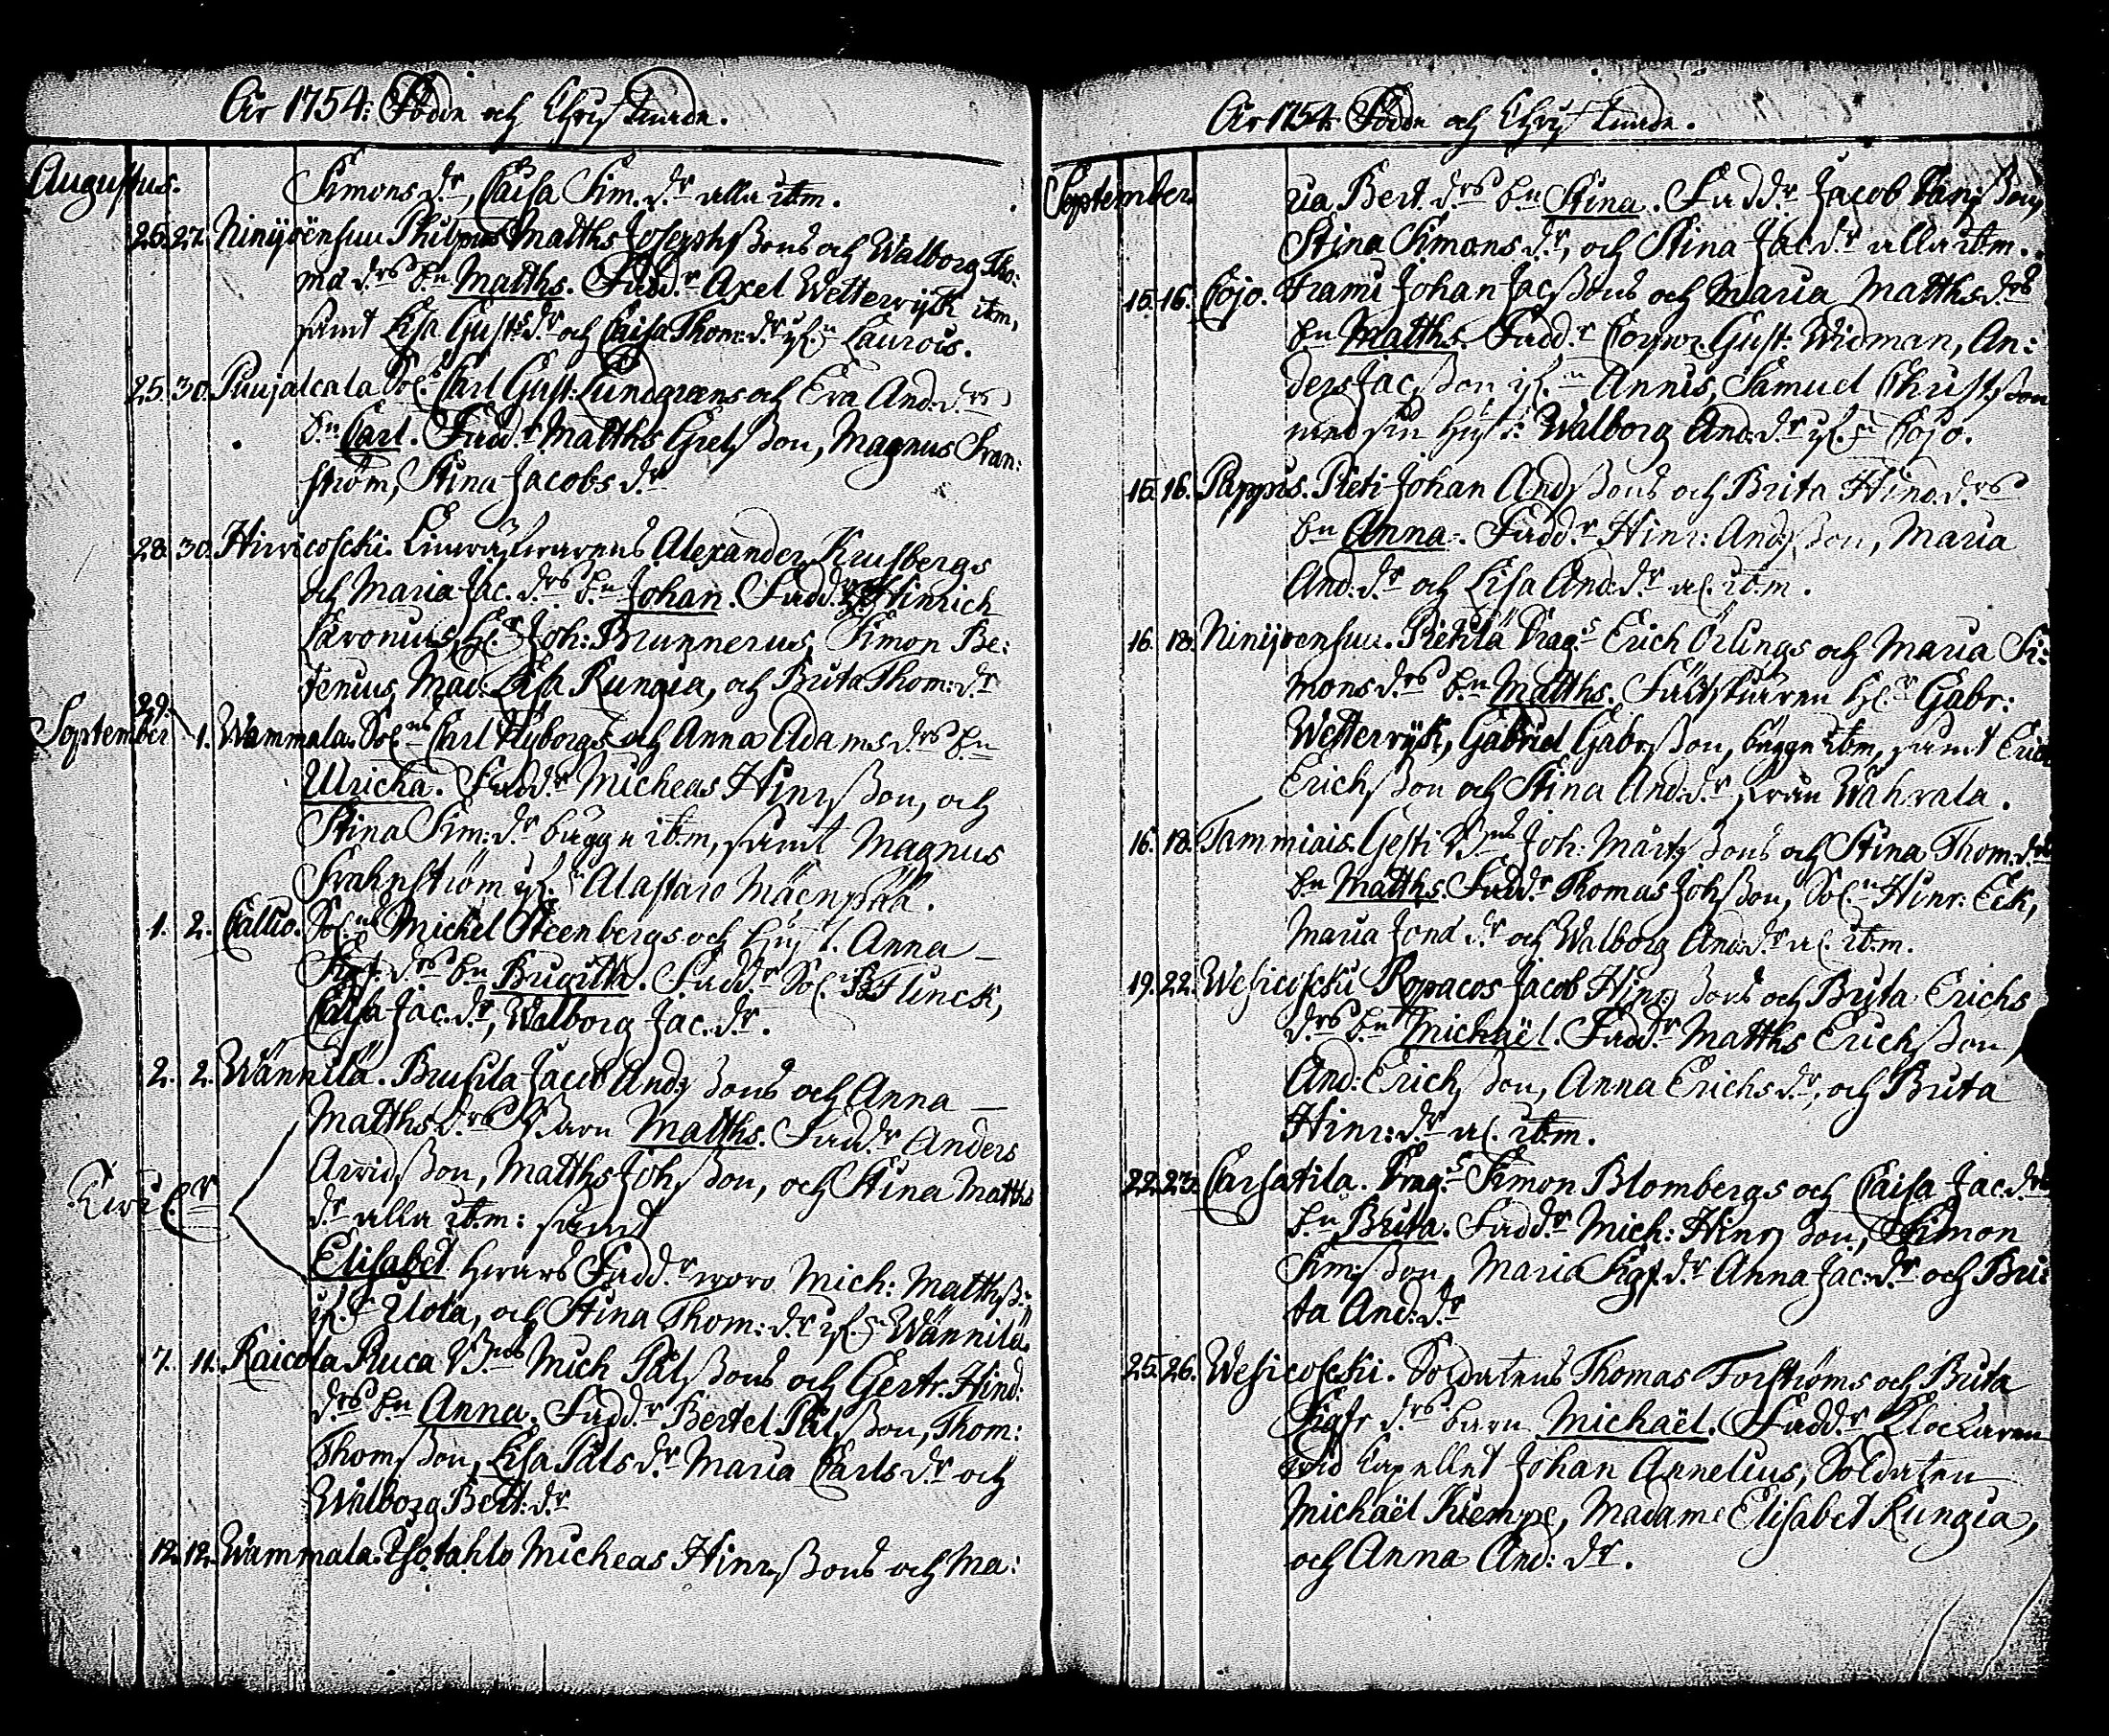 År 1754: Födde och Christnade.
Augustus.
Simons dr, Caisa Sim. dr alla ibm.
25. 27. Ninijoensuu Philpus Matths Josephssons och Walborg Tho:
mæ drs bn Matths. Fadd.r Axel Wetterwijk ibm,
samt Lisa Gust: dr och Caisa Thom: dr ifrån Laurois.
25. 30. Puujalcala Sol. Carl Gust: Lundgrens och Eva And: drs
bn Carl. Fadd.r Matths Grelsson, Magnus Fran:
ström, Stina Jacobs dr
28. 30. Hirvicoscki. Alexander Krusbergs
och Maria Jac. drs bn Johan. Fadd.r Hinrich
Joh: Brunnerus, Simon Be:
tenius, Mad: Lisa Rungia, och Brita Thom: dr
September 29. 1. Wammala. Sol. Carl Nyborgs och Anna Adams drs bn
Ulricha. Fadd.r Micheas Hinrsson, och
Stina Sim: dr bägge ibm, samt Magnus
Frahnström ifr. Alastaro Mäenpää.
1. 2. Callio. Sol. Mickel Steenbergs och Hust. Anna
drs bn Brigitta. Fadd.r Sol. Flinck,
Caisa Jac. dr, Walborg Jac. dr.
2. 2. Wännilä. Brusila Jacob Andssons och Anna
Matths drs Barn Matths. Fadd.r Anders
Arvidsson, Matths Johsson, och Stina Matths
dr alla ibm: samt
Elisabet hvars Fadd.r woro Mich: Matthss:
ifr. Uota, och Stina Thom: dr ifr. Wännilä.
7. 11. Raicola Ruca Bns Mich Pålssons och Gertr. Hind:
drs bn Anna. Fadd.r Bertel Pålsson, Thom:
Thomsson, Lisa Påls dr Maria Carls dr och
Walborg Bert: dr
12. 12. Wammala. Isotahlo Micheas Hinrssons och Ma:
År 1754: Födde och Christnade.
September
ria Bert. drs bn Stina. Fadd.r Jacob
Stina Simons dr, och Stina Jac dr alla ibm.
15. 16. Cojo. Frami Johan Jacssons och Maria Matths drs
bn Matths. Fadd.r Gust: Widman, An:
ders Jacsson ifrån Annis, Samuel Christsson
med sin Hust: Walborg And: dr ifr. Cojo.
15. 16. Pappis. Pieti Johan Andssons och Brita Hind. drs
bn Anna. Fadd.r Hinr: Andsson, Maria
And: dr och Lisa And: dr al. ibm.
16. 18. Ninijoensuu. Piehilä Drag. Erich Örlings och Maria Si:
mons drs bn Matths. Fältskiären Hr Gabr:
Wetterwijk, Gabriel Gabrsson, bägge ibm, samt Erich
Erichsson och Stina And: dr från Wahvala.
16. 18. Tammiais. Gesti Bns Joh: Mårtssons och Stina Thom: drs
bn Matths. Fadd.r Thomas Johsson, Sol. Hinr: Eek,
Maria Jond dr och Walborg And: dr al. ibm.
19. 22. Wesicoscki Ropacos Jacob Hinrssons och Brita Erichs
drs bn Michaël. Fadd.r Matths Erichsson
And: Erichsson, Anna Erichs dr, och Brita
Hinr: dr al. ibm.
22. 23. Carsatila. Drag. Simon Blombergs och Caisa Jac. drs
bn Brita. Fadd.r Mich: Hinrsson, Simon
Simsson, Maria dr Anna Jac: dr och Bri:
ta And: dr
25. 26. Wesicoscki. Soldatens Thomas Forströms och Brita
drs barn Michaël. Fadd.r Klockaren
wid Capellet Johan Annelius, Soldaten
Michaël Kiempe, Madame Elisabet Rungia,
och Anna And: dr.